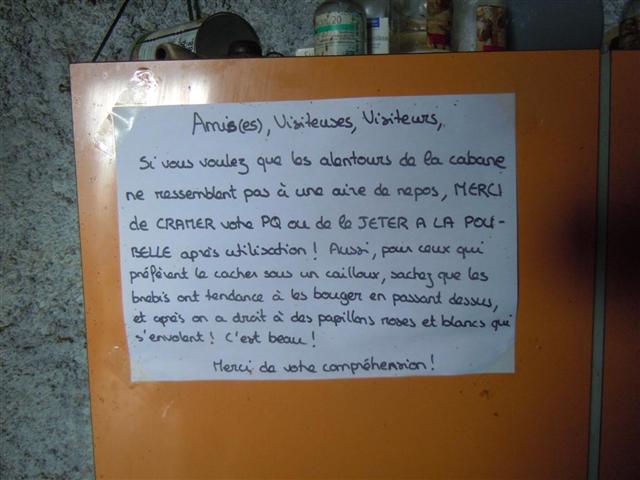 Amis(es), Visiteuses, Visiteurs,
Si vous voulez que les alentours de la cabane
ne ressemblent pas à une aire de repos, MERCI
de CRAMER votre PQ ou de le JETER A LA POU-
BELLE après utilisation ! Aussi, pour ceux qui
préfèrent le cacher sous un cailloux, sachez que les
brebis ont tendance à les bouger en passant dessus,
et après on a droit à des papillons roses et blancs qui
s'envolent ! C'est beau !
Merci de votre compréhension !